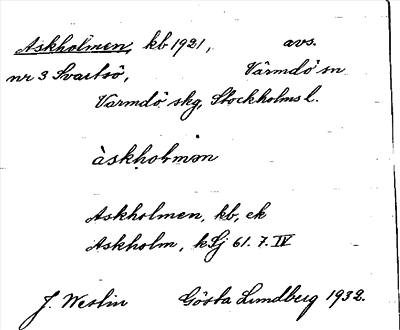 Askholmen, kb 1921, avs.
nr 3 Svartsö, Värmdö sn
Värmdö skg, Stockholms l.
àskholmən
Askholmen, kb, ek
Askholm, kSj 61. 7. IV
J. Westin Gösta Lundberg 1932.